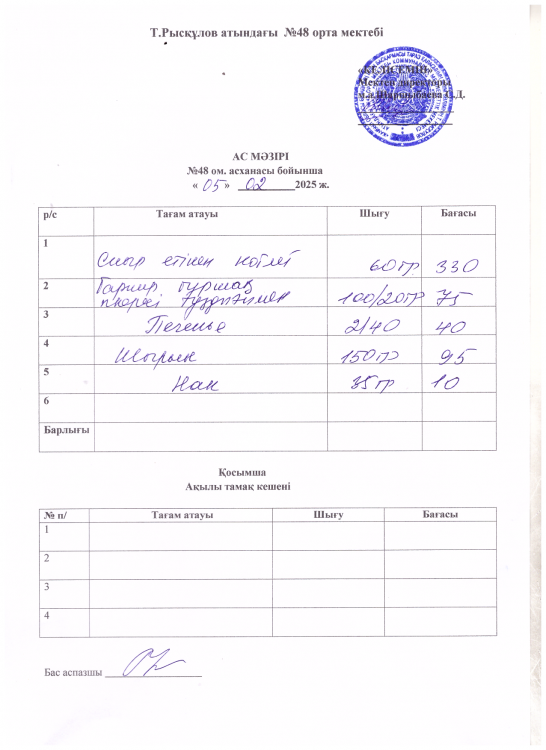 Т.Рысқұлов атындағы №48 орта мектебі
«КЕЛІСЕМІН»
Мектеп директоры
АС МӘЗІРІ
№48 ом. асханасы бойынша
« 05 » 02 2025 ж.
р/с Тағам атауы Шығу Бағасы
1 Сиыр етінен котлет 60гр 330
2 Гарнир бұршақ
пюресі тұздықпен 100/20гр 75
3 Печенье 2/40 40
4 Шырын 150гр 95
5 Нан 35 гр 10
6
Барлығы
Қосымша
Ақылы тамақ кешені
№ п/ Тағам атауы Шығу Бағасы
1
2
3
4
Бас аспазшы